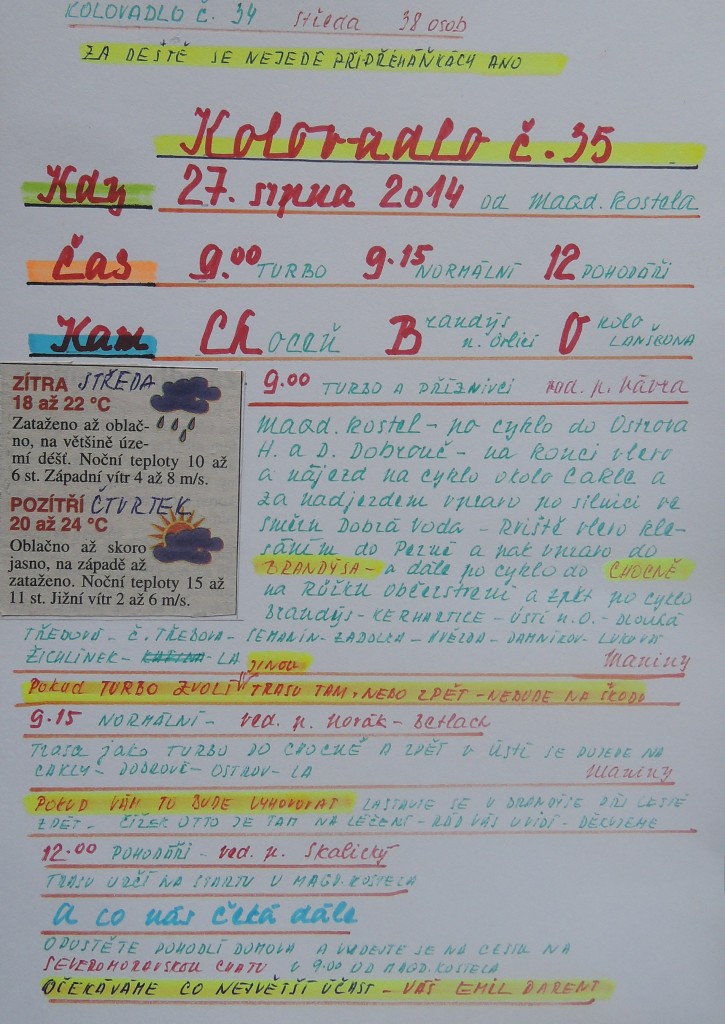 KOLOVADLO Č. 34 středa 38 osob
ZA DEŠTĚ SE NEJEDE PŘI PŘEHÁŇKÁCH ANO
Kolovadlo č. 35
Kdy 27. srpna 2014 od Magd. kostela
Čas 9.00 TURBO 9.15 NORMÁLNÍ 12 POHODÁŘI
Kam Choceň Brandýs n. Orlicí Okolo LANŠKROUNA
ZÍTRA STŘEDA
18 až 22 °C
Zataženo až oblač-
no, na většině úze-
mí déšť. Noční teploty 10 až
6 st. Západní vítr 4 až 8 m/s.
POZÍTŘÍ ČTVRTEK
20 až 24 °C
Oblačno až skoro
jasno, na západě až
zataženo. Noční teploty 15 až
11 st. Jižní vítr 2 až 6 m/s.
9.00 TURBO A PŘÍZNIVCI ved. p. Vávra
Magd. kostel - po cyklo do Ostrova
H. a D. Dobrouč - na konci vlevo
a nájezd na cyklo okolo Cakle a
za nadjezdem vpravo po silnici ve
směru Dobrá Voda - Rviště vlevo kle-
sáním do Perné a pak vpravo do
BRANDÝSA - a dále po cyklo do CHOCNĚ
na Růžku občerstvení a zpět po cyklo
Brandýs - KERHARTICE - ÚSTÍ n. O. - DLOUHÁ
TŘEBOVÁ - Č. TŘEBOVÁ - SEMANÍN - ZÁDOLKA - HVĚZDA - DAMNÍKOV - LUKOVÁ
ŽICHLÍNEK - LA Mariny
JINOU
POKUD TURBO ZVOLÍ TRASU TAM, NEBO ZPĚT - NEBUDE NA ŠKODU
9.15 NORMÁLNÍ - ved. p. Novák - Betlach
Trasa jako TURBO DO CHOCNĚ A ZPĚT V ÚSTÍ SE POJEDE NA
CAKLY - DOBROUČ - OSTROV - LA Mariny
POKUD VÁM TO BUDE VYHOVOVAT ZASTAVTE SE V BRANDÝSE PŘI CESTĚ
ZPĚT - ČÍŽEK OTTO JE TAM NA LÉČENÍ - RÁD VÁS UVIDÍ - DĚKUJEME
12.00 POHODÁŘI - ved. p. Skalický
TRASU URČÍ NA STARTU U MAGD. KOSTELA
A co nás čeká dále
OPUSTĚTE POHODLÍ DOMOVA A VYDEJTE SE NA CESTU NA
SEVEROMORAVSKOU CHATU V 9.00 OD MAGD. KOSTELA
OČEKÁVÁME CO NEJVĚTŠÍ ÚČAST - VÁŠ EMIL DARENT